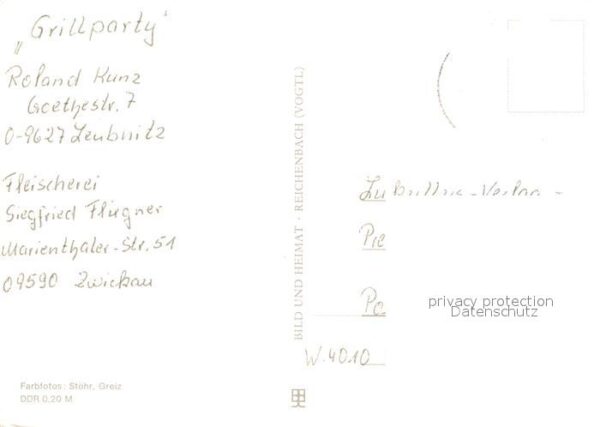 „Grillparty"
Roland Kunz
Goethestr. 7
O-9627 Leubnitz
Fleischerei
Siegfried Flügner
Marienthaler-Str. 51
09590 Zwickau
BILD UND HEIMAT · REICHENBACH (VOGTL)
W. 4010
privacy protection
Datenschutz
Farbfotos: Stöhr, Greiz
DDR 0,20 M